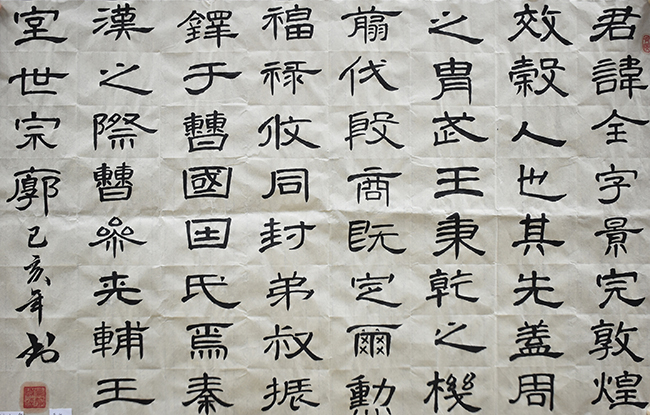 君諱全字景完敦煌
效穀人也其先蓋周
之胄武王秉乾之機
翦伐殷商既定爾勳
福祿攸同封弟叔振
鐸于曹國因氏焉秦
漢之際曹參夾輔王
室世宗廓己亥年書